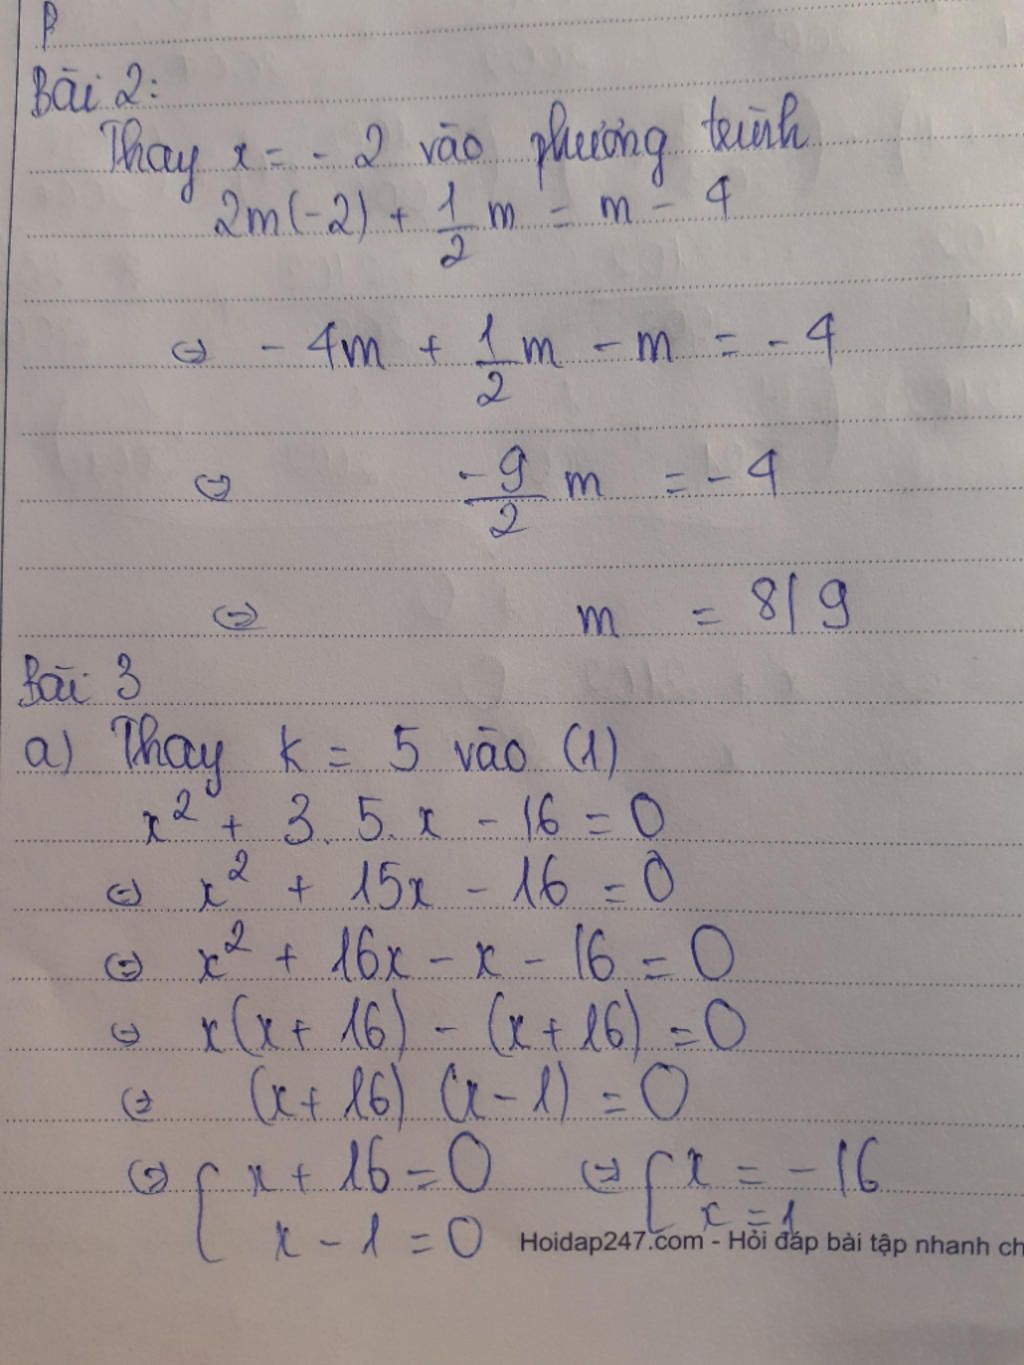 Bài 2:
Thay x = - 2 vào phương trình
2m(-2) + 1/2 m = m - 4
⇔ - 4m + 1/2 m - m = - 4
⇔ -9/2 m = - 4
⇔ m = 8/9
Bài 3
a) Thay k = 5 vào (1)
x² + 3. 5. x - 16 = 0
⇔ x² + 15x - 16 = 0
⇔ x² + 16x - x - 16 = 0
⇔ x(x + 16) - (x + 16) = 0
⇔ (x + 16) (x - 1) = 0
⇔ [ x + 16 = 0 ⇔ [ x = - 16
x - 1 = 0 x = 1
Hoidap247.com - Hỏi đáp bài tập nhanh ch